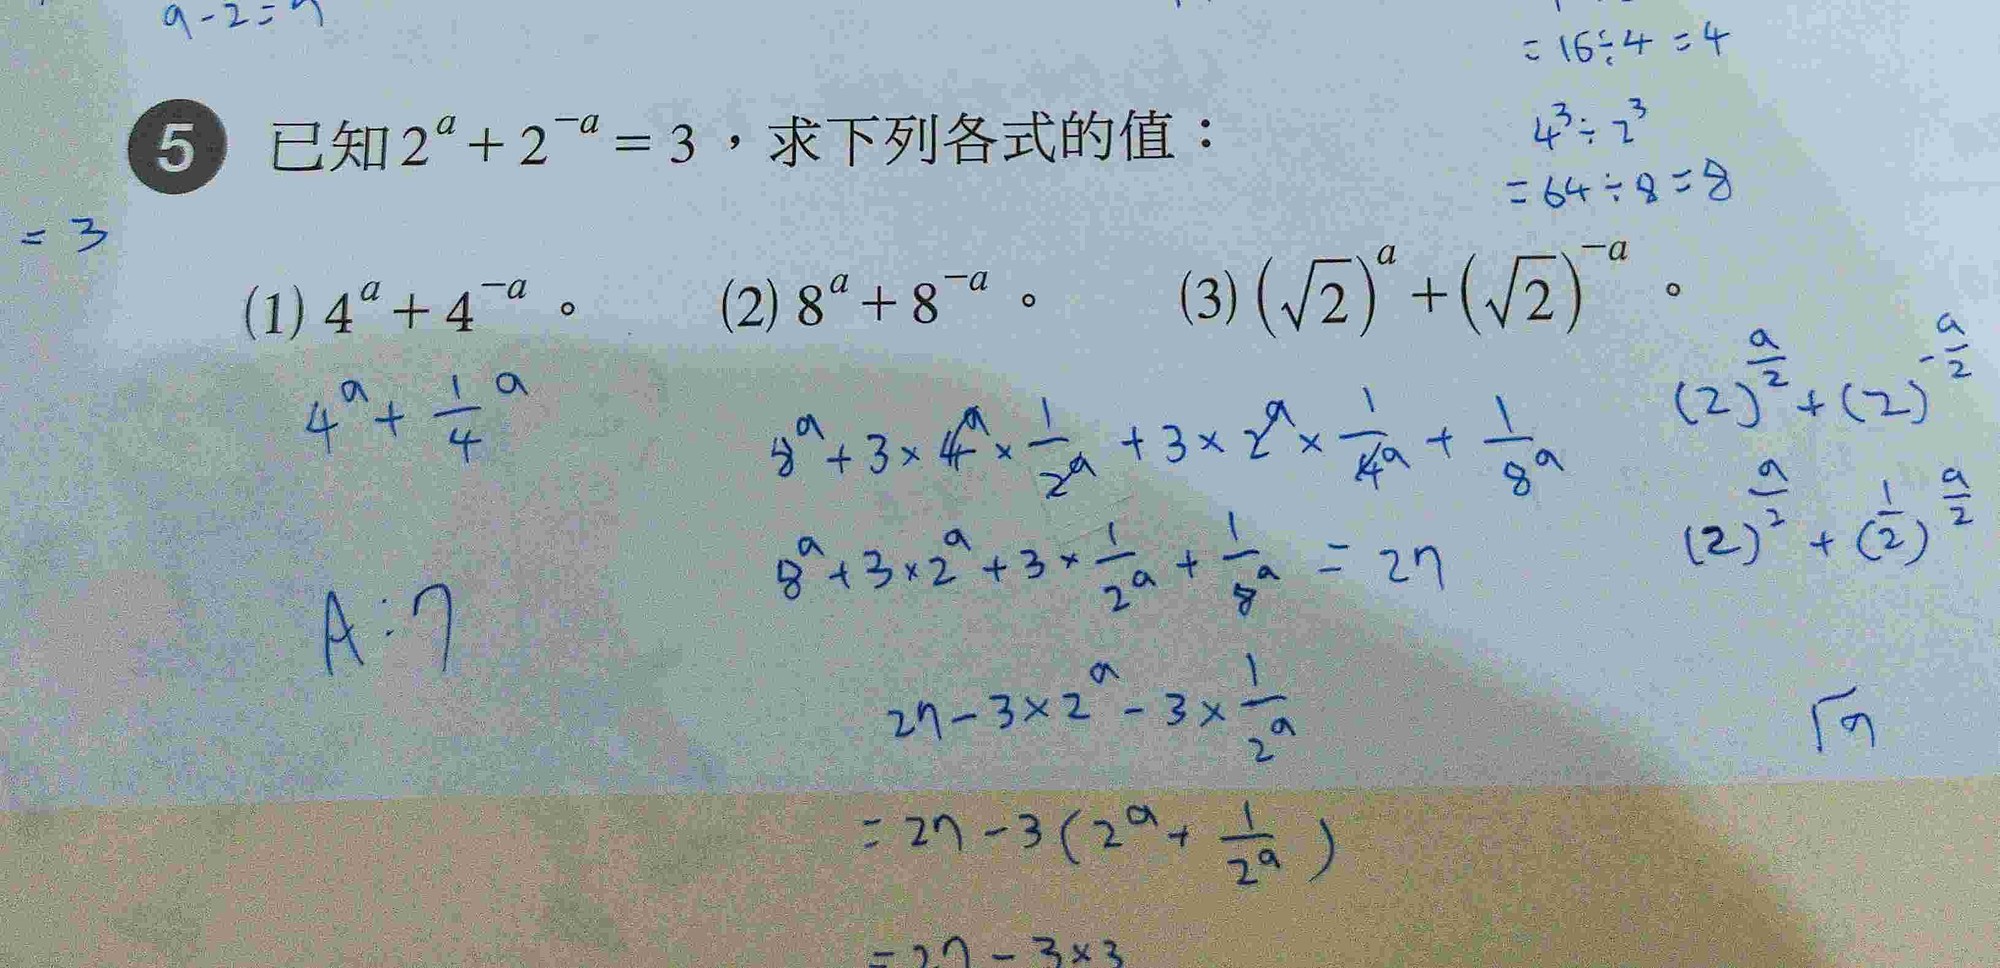 9-2=7
=16÷4=4
5 已知 2^a + 2^{-a} = 3，求下列各式的值：
4^3÷2^3
=64÷8=8
= 3
(1) 4^a + 4^{-a}。 (2) 8^a + 8^{-a}。 (3) (√2)^a + (√2)^{-a}。
4^a + 1/4^a
8^a + 3×4^a×1/2^a + 3×2^a×1/4^a + 1/8^a
(2)^{a/2} + (2)^{-a/2}
8^a + 3×2^a + 3×1/2^a + 1/8^a = 27
(2)^{a/2} + (1/2)^{a/2}
A:7
27 - 3×2^a - 3×1/2^a
= 27 - 3(2^a + 1/2^a)
= 27 - 3×3